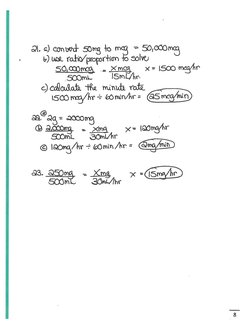 21. a) convert 50mg to mcg = 50,000mcg
b) use ratio/proportion to solve
50,000mcg = x mcg x = 1500 mcg/hr
500mL 15mL/hr
c) calculate the minute rate
1500 mcg/hr ÷ 60min/hr = 25mcg/min
22. a 2g = 2000mg
b 2,000mg = xmg x = 120mg/hr
500mL 30mL/hr
c 120mg/hr ÷ 60min/hr = 2mg/min
23. 250mg = xmg x = 15mg/hr
500mL 30mL/hr